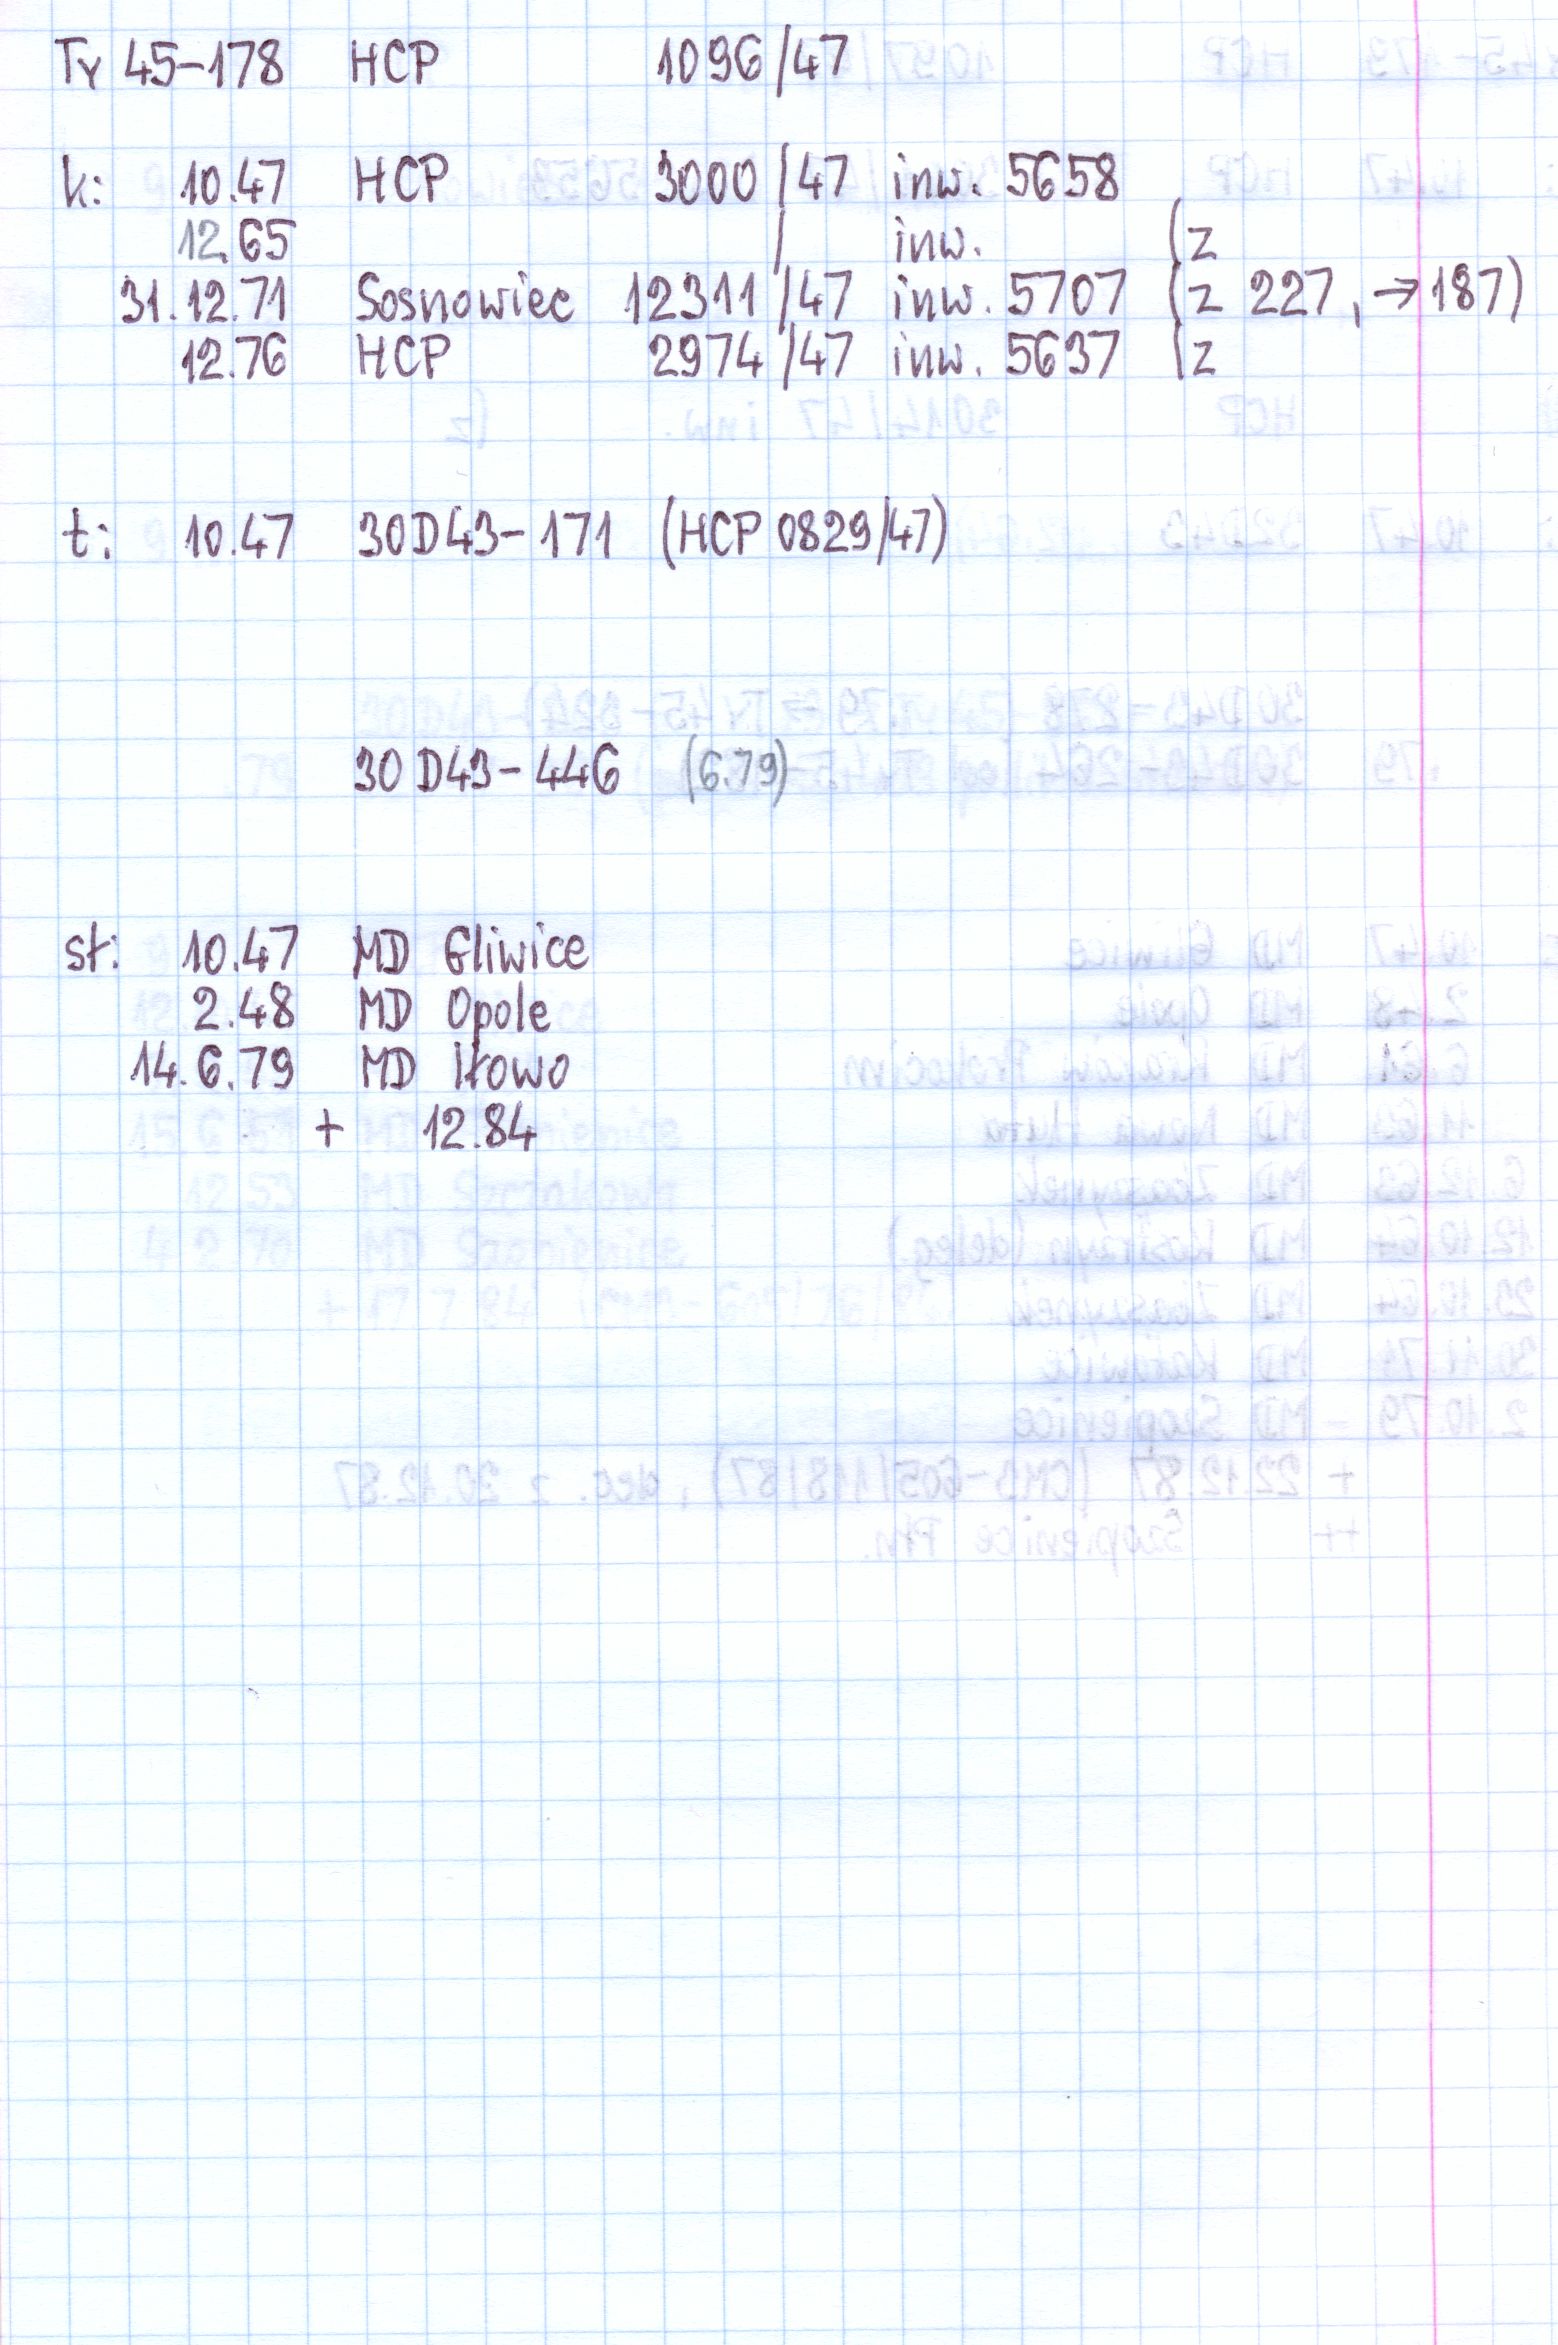 Ty 45-178 HCP 1096/47
k: 10.47 HCP 3000/47 inw. 5658
12.65 / inw. (z
31.12.71 Sosnowiec 12311/47 inw. 5707 (z 227, →187)
12.76 HCP 2974/47 inw. 5637 (z
t: 10.47 30D43-171 (HCP 0829/47)
30D43-446 (6.79)
st: 10.47 MD Gliwice
2.48 MD Opole
14.6.79 MD Iłowo
+ 12.84